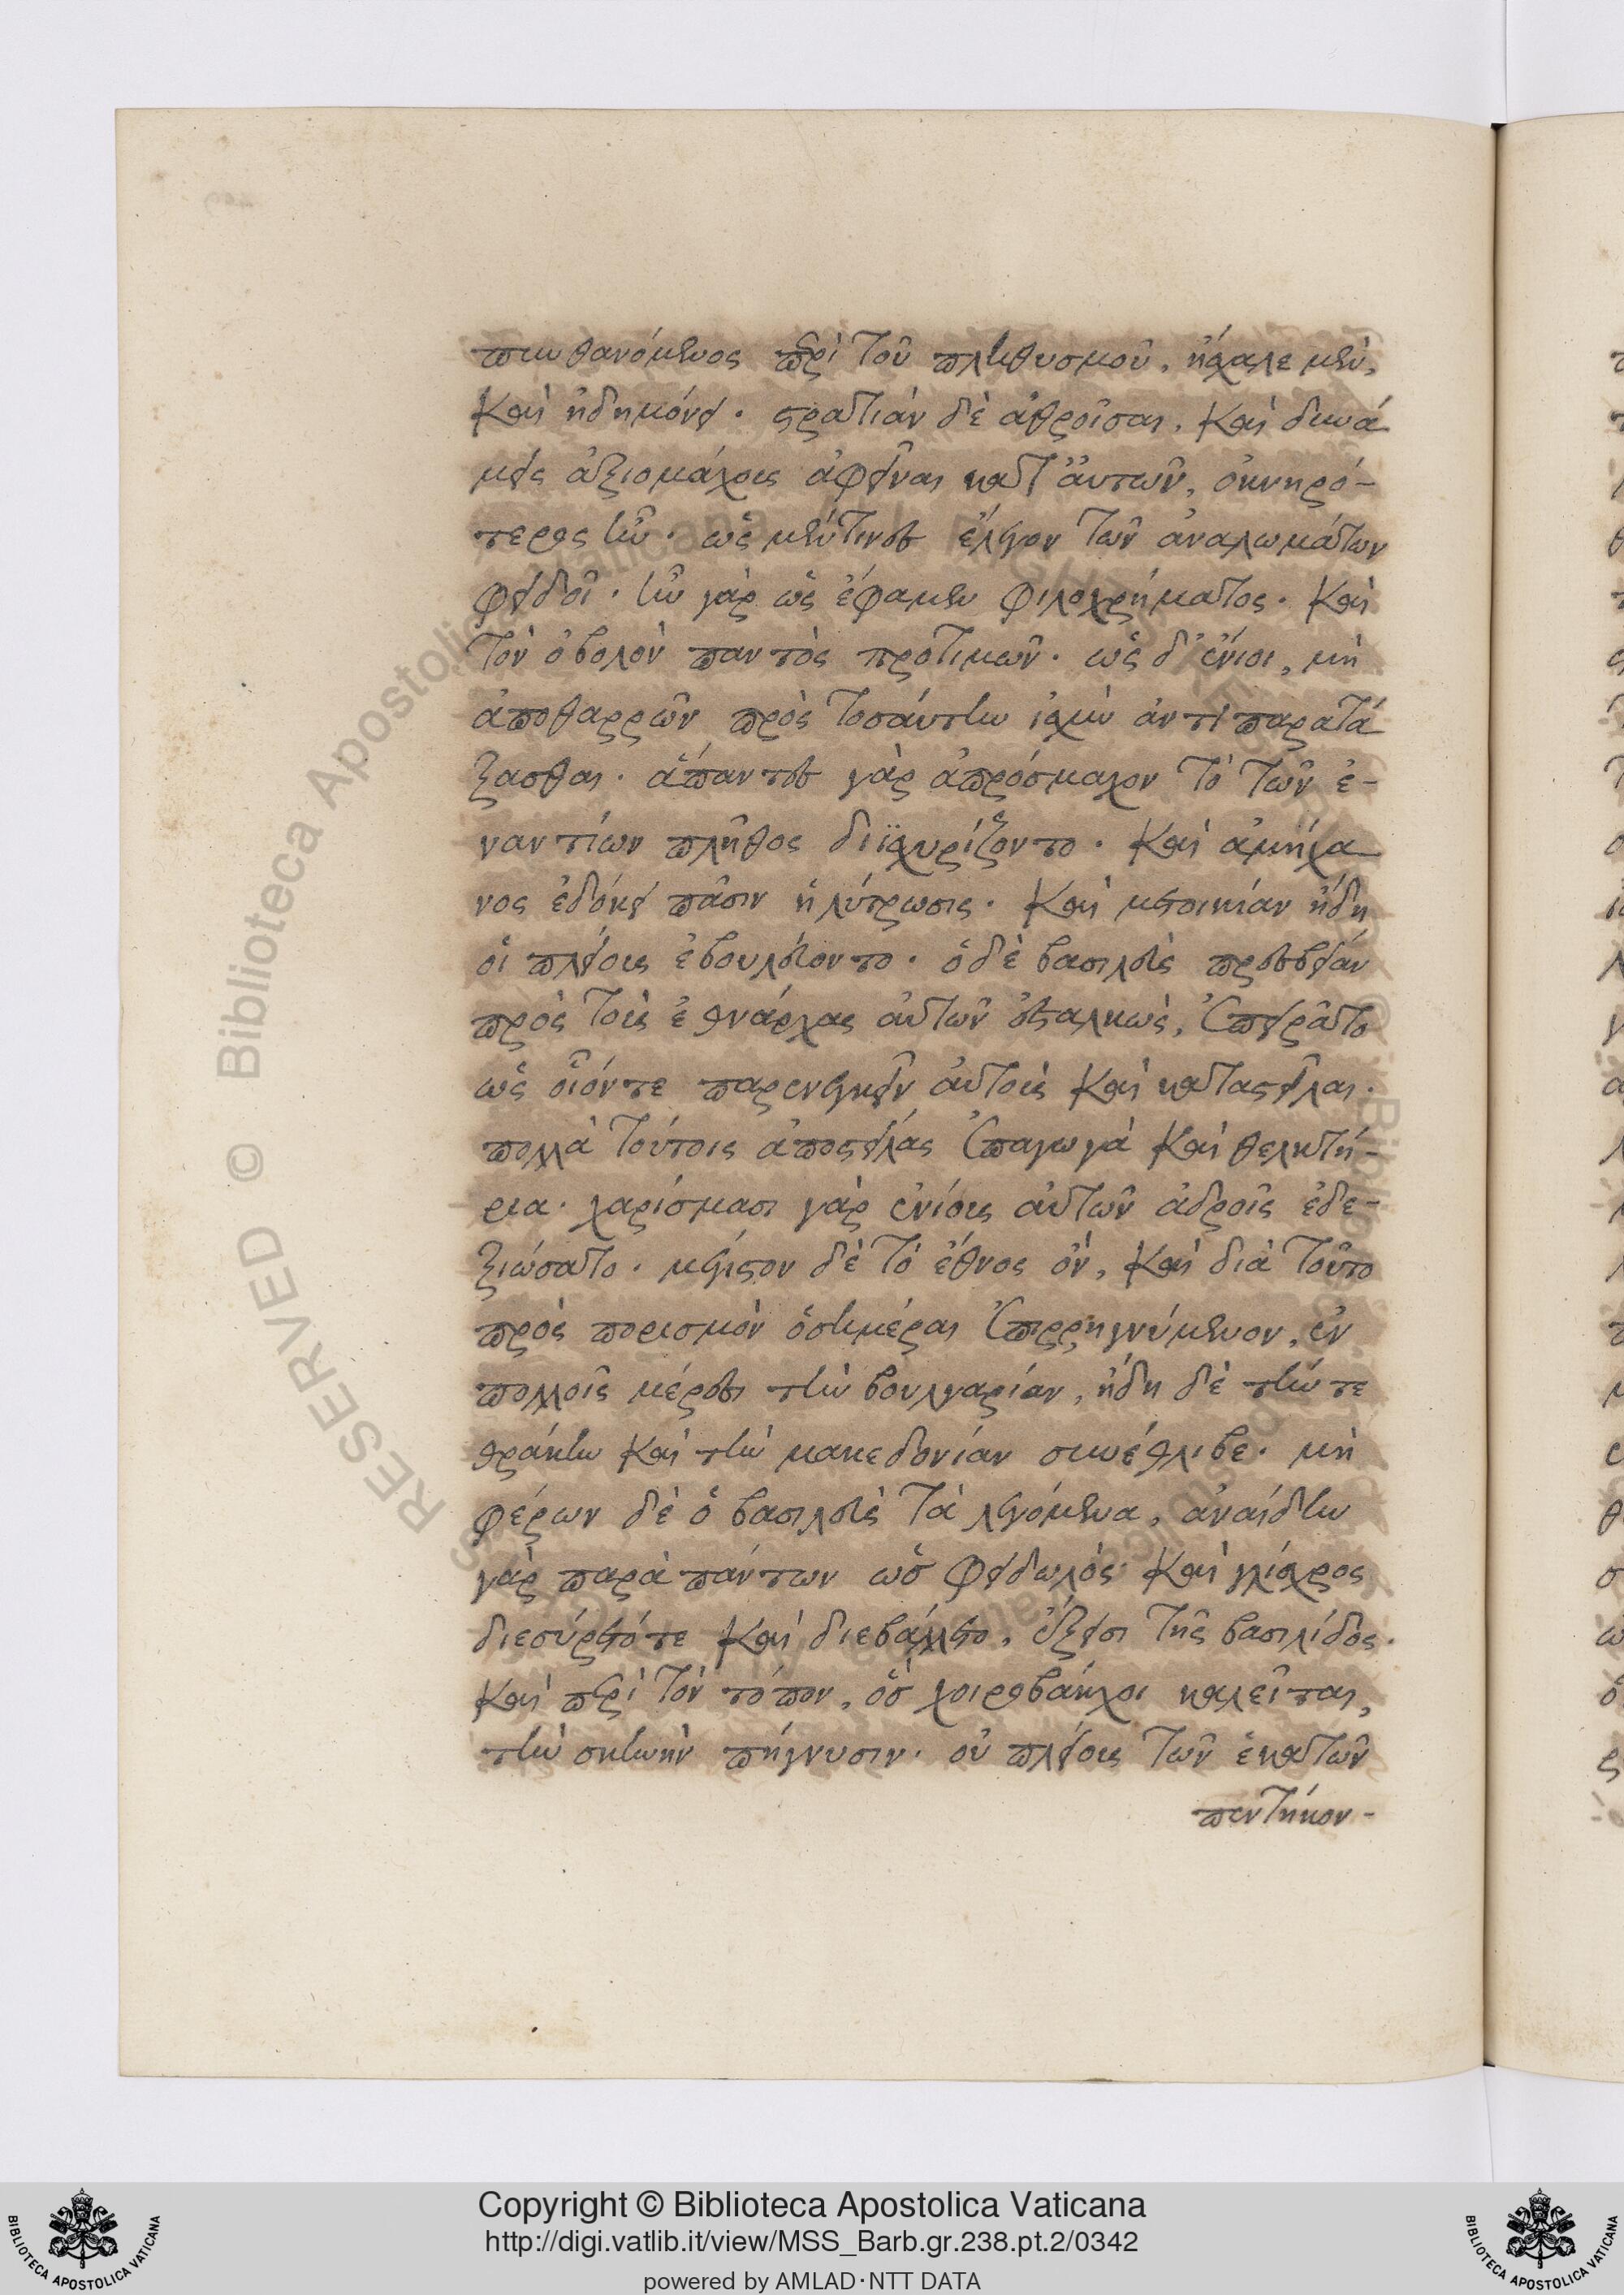 πυνθανόμενος περὶ τοῦ πληθυσμοῦ, ἤσχαλε μὲν,
καὶ ἠδημόνει· στρατιὰν δὲ ἀθροῖσαι, καὶ δυνά
μεις ἀξιομάχους ἀφεῖναι κατ' ἀυτῶν, ὀκνηρό-
τερος ἦν· ὡς μέν τινες ἔλεγον τῶν ἀναλωμάτων
φειδοῖ· ἦν γὰρ ὡς ἔφαμεν φιλοχρήματος· καὶ
τὸν ὀβολὸν παντὸς προτιμῶν· ὡς δ' ἔνιοι, μὴ
ἀποθαρρῶν πρὸς τοσάυτην ἰσχὺν ἀντιπαρατά
ξασθαι· ἅπαντες γὰρ ἀπρόσμαχον τὸ τῶν ἐ-
ναντίων πλῆθος διϊσχυρίζοντο· καὶ ἀμήχα
νος ἐδόκει πᾶσιν ἡ λύτρωσις· καὶ μετοικίαν ἤδη
οἱ πλείους ἐβουλεύοντο· ὁ δὲ βασιλεὺς πρεσβείαν
πρὸς τοὺς ἐθνάρχας αὐτῶν ἐξαλκὼς, ἐπειρᾶτο
ὡς οἷόντε παρενεγκεῖν αὐτοὺς καὶ καταστεῖλαι·
πολλὰ τούτοις ἀποστείλας ἐπαγωγὰ καὶ θελκτή-
ρια· χαρίσμασι γὰρ ἐνίους αὐτῶν ἁδροῖς ἐδε-
ξιώσατο· μέγιστον δὲ τὸ ἔθνος ὂν, καὶ διὰ τοῦτο
πρὸς πορισμὸν ὁσημέραι ἐπιρρηγνύμενον, ἐν
πολλοῖς μέρεσι τὴν βουλγαρίαν, ἤδη δὲ τήν τε
θράκην καὶ τὴν μακεδονίαν συνέθλιβε· μὴ
φέρων δὲ ὁ βασιλεὺς τὰ λεγόμενα, ἀναίδην
γὰρ παρὰ πάντων ὡς φειδωλὸς καὶ γλίσχρος
διεσύρετό τε καὶ διεβάλλετο, ἔξεισι τῆς βασιλίδος·
καὶ περὶ τὸν τόπον, ὃς χοιροβάκχοι καλεῖται,
τὴν σκηνὴν πήγνυσιν· οὐ πλείους τῶν ἑκατῶν
πεντήκον-
Copyright © Biblioteca Apostolica Vaticana
http://digi.vatlib.it/view/MSS_Barb.gr.238.pt.2/0342
powered by AMLAD·NTT DATA